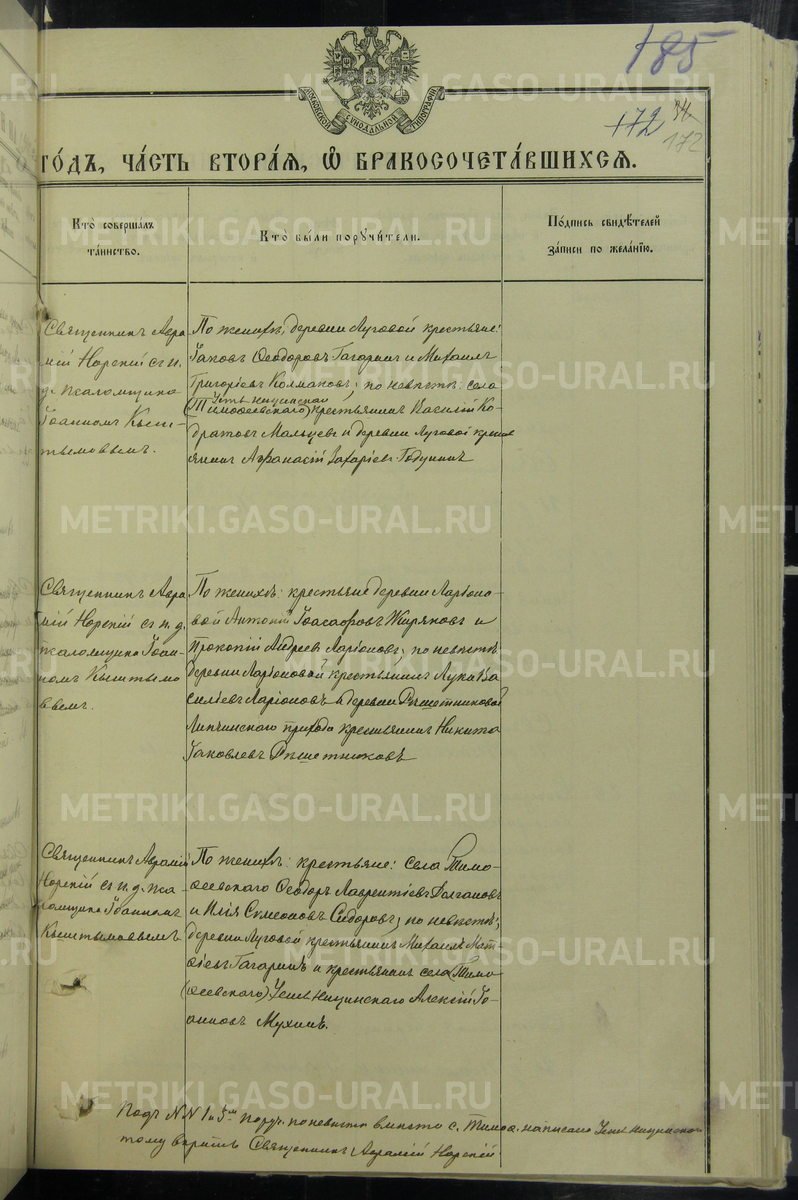 185
172 84
172
МОСКОВСКОЙ СУНОДАЛЬНОЙ ТИПОГРАФІИ
ГО́ДЪ, ЧА́СТЬ ВТОРА́Я, Ѡ БРАКОСОЧЕТА́ВШИХСЯ.
Кто̀ соверша́лъ
та́инство.
Кто̀ бы́ли поручи́тели.
По́дпись свидѣ́телей
за́писи по жела́нїю.
Священникъ Авра
мій Норскій съ и.
д. псаломщика
Іоанномъ Кыш
тымовымъ.
По женихѣ, деревни Луговой крестьяне:
Іаковъ Ѳеодоровъ Гагаринъ и Михаилъ
Григоріевъ Колмаковъ; по невѣстѣ: села
Усть-Ницинскаго
(Тимоѳеевскаго) крестьянинъ Василій Ко
дратовъ Мальцевъ и деревни Луговой крест
янинъ Аѳанасій Захаріевъ Годунинъ
Священникъ Авра
мій Норскій съ и. д.
псаломщика Іоан
номъ Кыштымо
вымъ.
По женихѣ: крестьяне деревни Ларіоно
вой Антоній Іоасафовъ Жиряковъ и
Прокопій Андреевъ Ларіоновъ; по невѣстѣ:
деревни Ларіоновой крестьянинъ Лука Ва
силіевъ Ларіоновъ и деревни Рѣшетниковой
Липчинскаго прихода крестьянинъ Никита
Іаковлевъ Рѣшетниковъ
Священникъ Аврамій
Норскій съ и. д. пса
ломщика Іоанномъ
Кыштымовымъ
По женихѣ: крестьяне: села Тимо
ѳеевскаго Ѳеодоръ Лаврентіевъ Долгановъ
и Илія Симеоновъ Сидоровъ; по невѣстѣ;
деревни Луговой крестьянинъ Михаилъ Мат
ѳіевъ Гагаринъ и крестьянинъ села (Тимо
ѳеевскаго) Усть Ницинскаго Алексій Іо
анновъ Мухинъ.
Подъ №№ 1 и 5мъ поруч. по невѣстѣ вмѣсто с. Тимоѳ. написано Усть Ницинскаго
тому вѣрить Священникъ Аврамій Норскій
METRIKI.GASO-URAL.RU